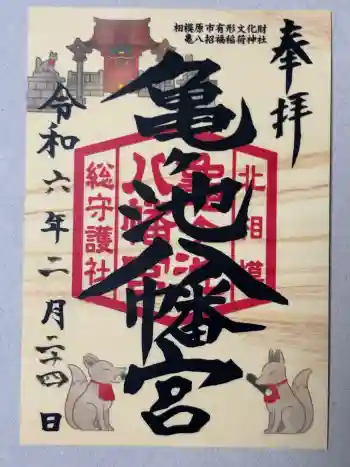 相模原市有形文化財
亀八招福稲荷神社
奉拝
亀ヶ池八幡宮
北相模
亀ヶ池
八幡宮
総守護社
令和六年二月二十四日